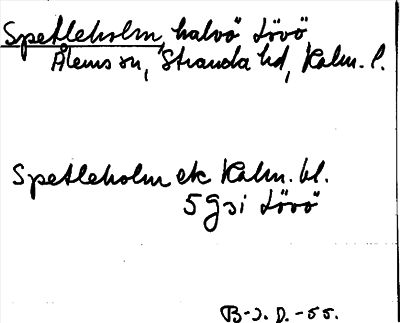 Spetleholm, halvö Lövö
Ålems sn, Stranda hd, Kalm. l.
Spetleholm ek Kalm. bl.
5 g si Lövö
B-J. D. -55.